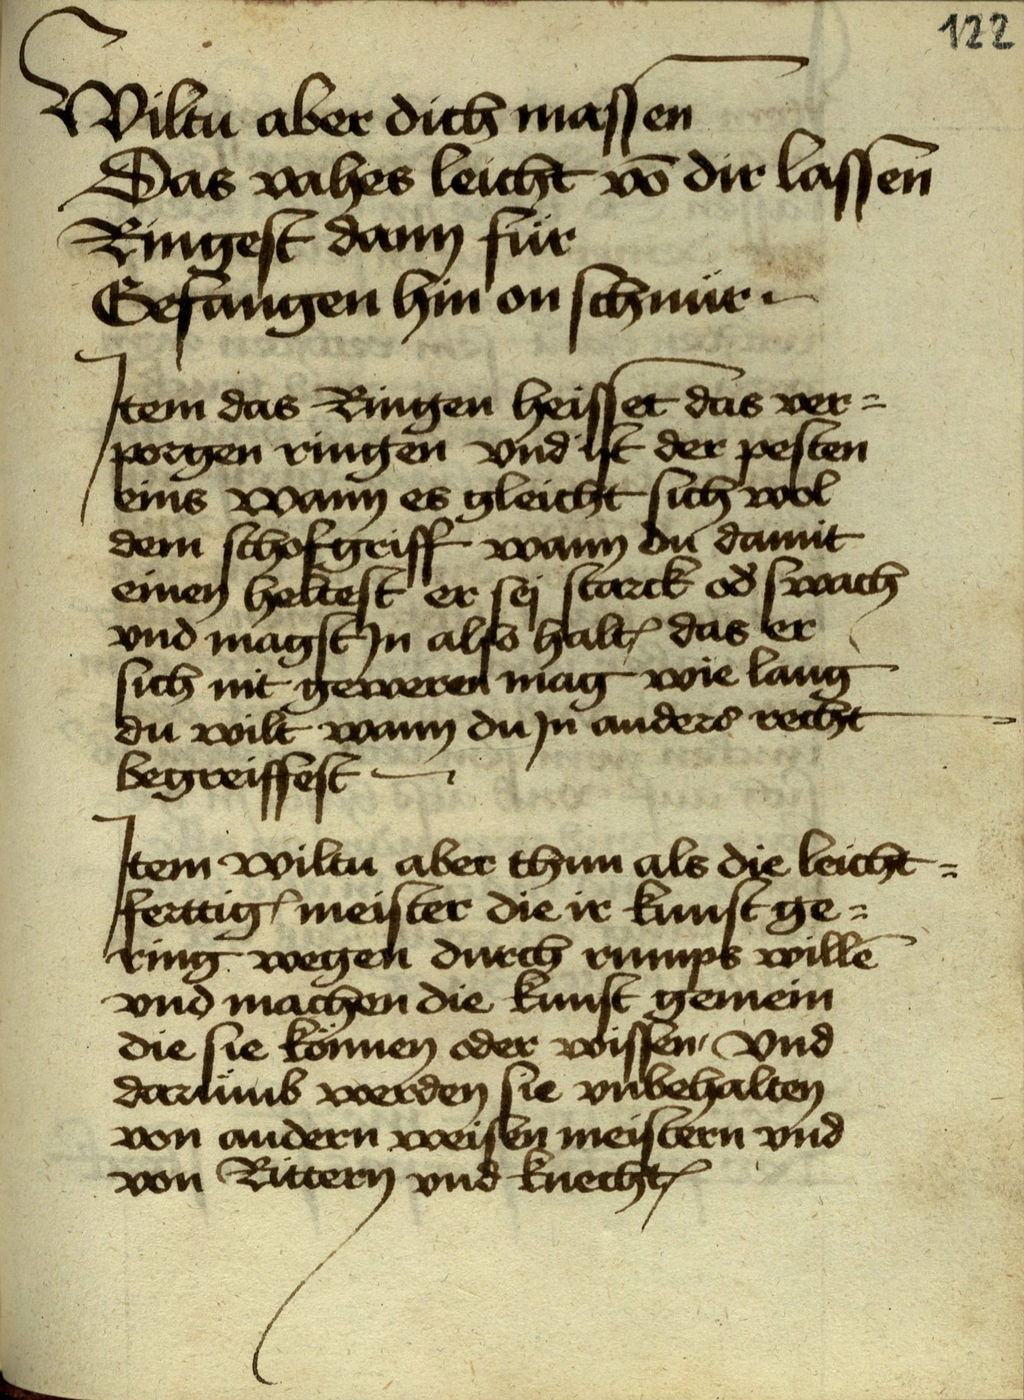 122
Wiltu aber dich massen
Das vahes leicht vō dir lassen̄
Ringest dann für
Gefangen hin on schnür
Item das Ringen heisset das ver=
porgen ringen vnd ist der pesten
eins wann es gleicht sich wol
dem schofgriff wann du damit
einen heltest er sej starck od swach
vnd magst Jn also halt das er
sich nit geweren mag wie lang
du wilt wann du Jn anders recht
begreiffest
Item wiltu aber thun als die leicht=
ferttig meister die ir kunst ge=
ring wegen durch rumps willē
vnd machen die kunst gemein
die sie können oder wissen Vnd
darümb werden sie vnbehalten
von andern weisen meistern vnd
von Rittern vnd knecht